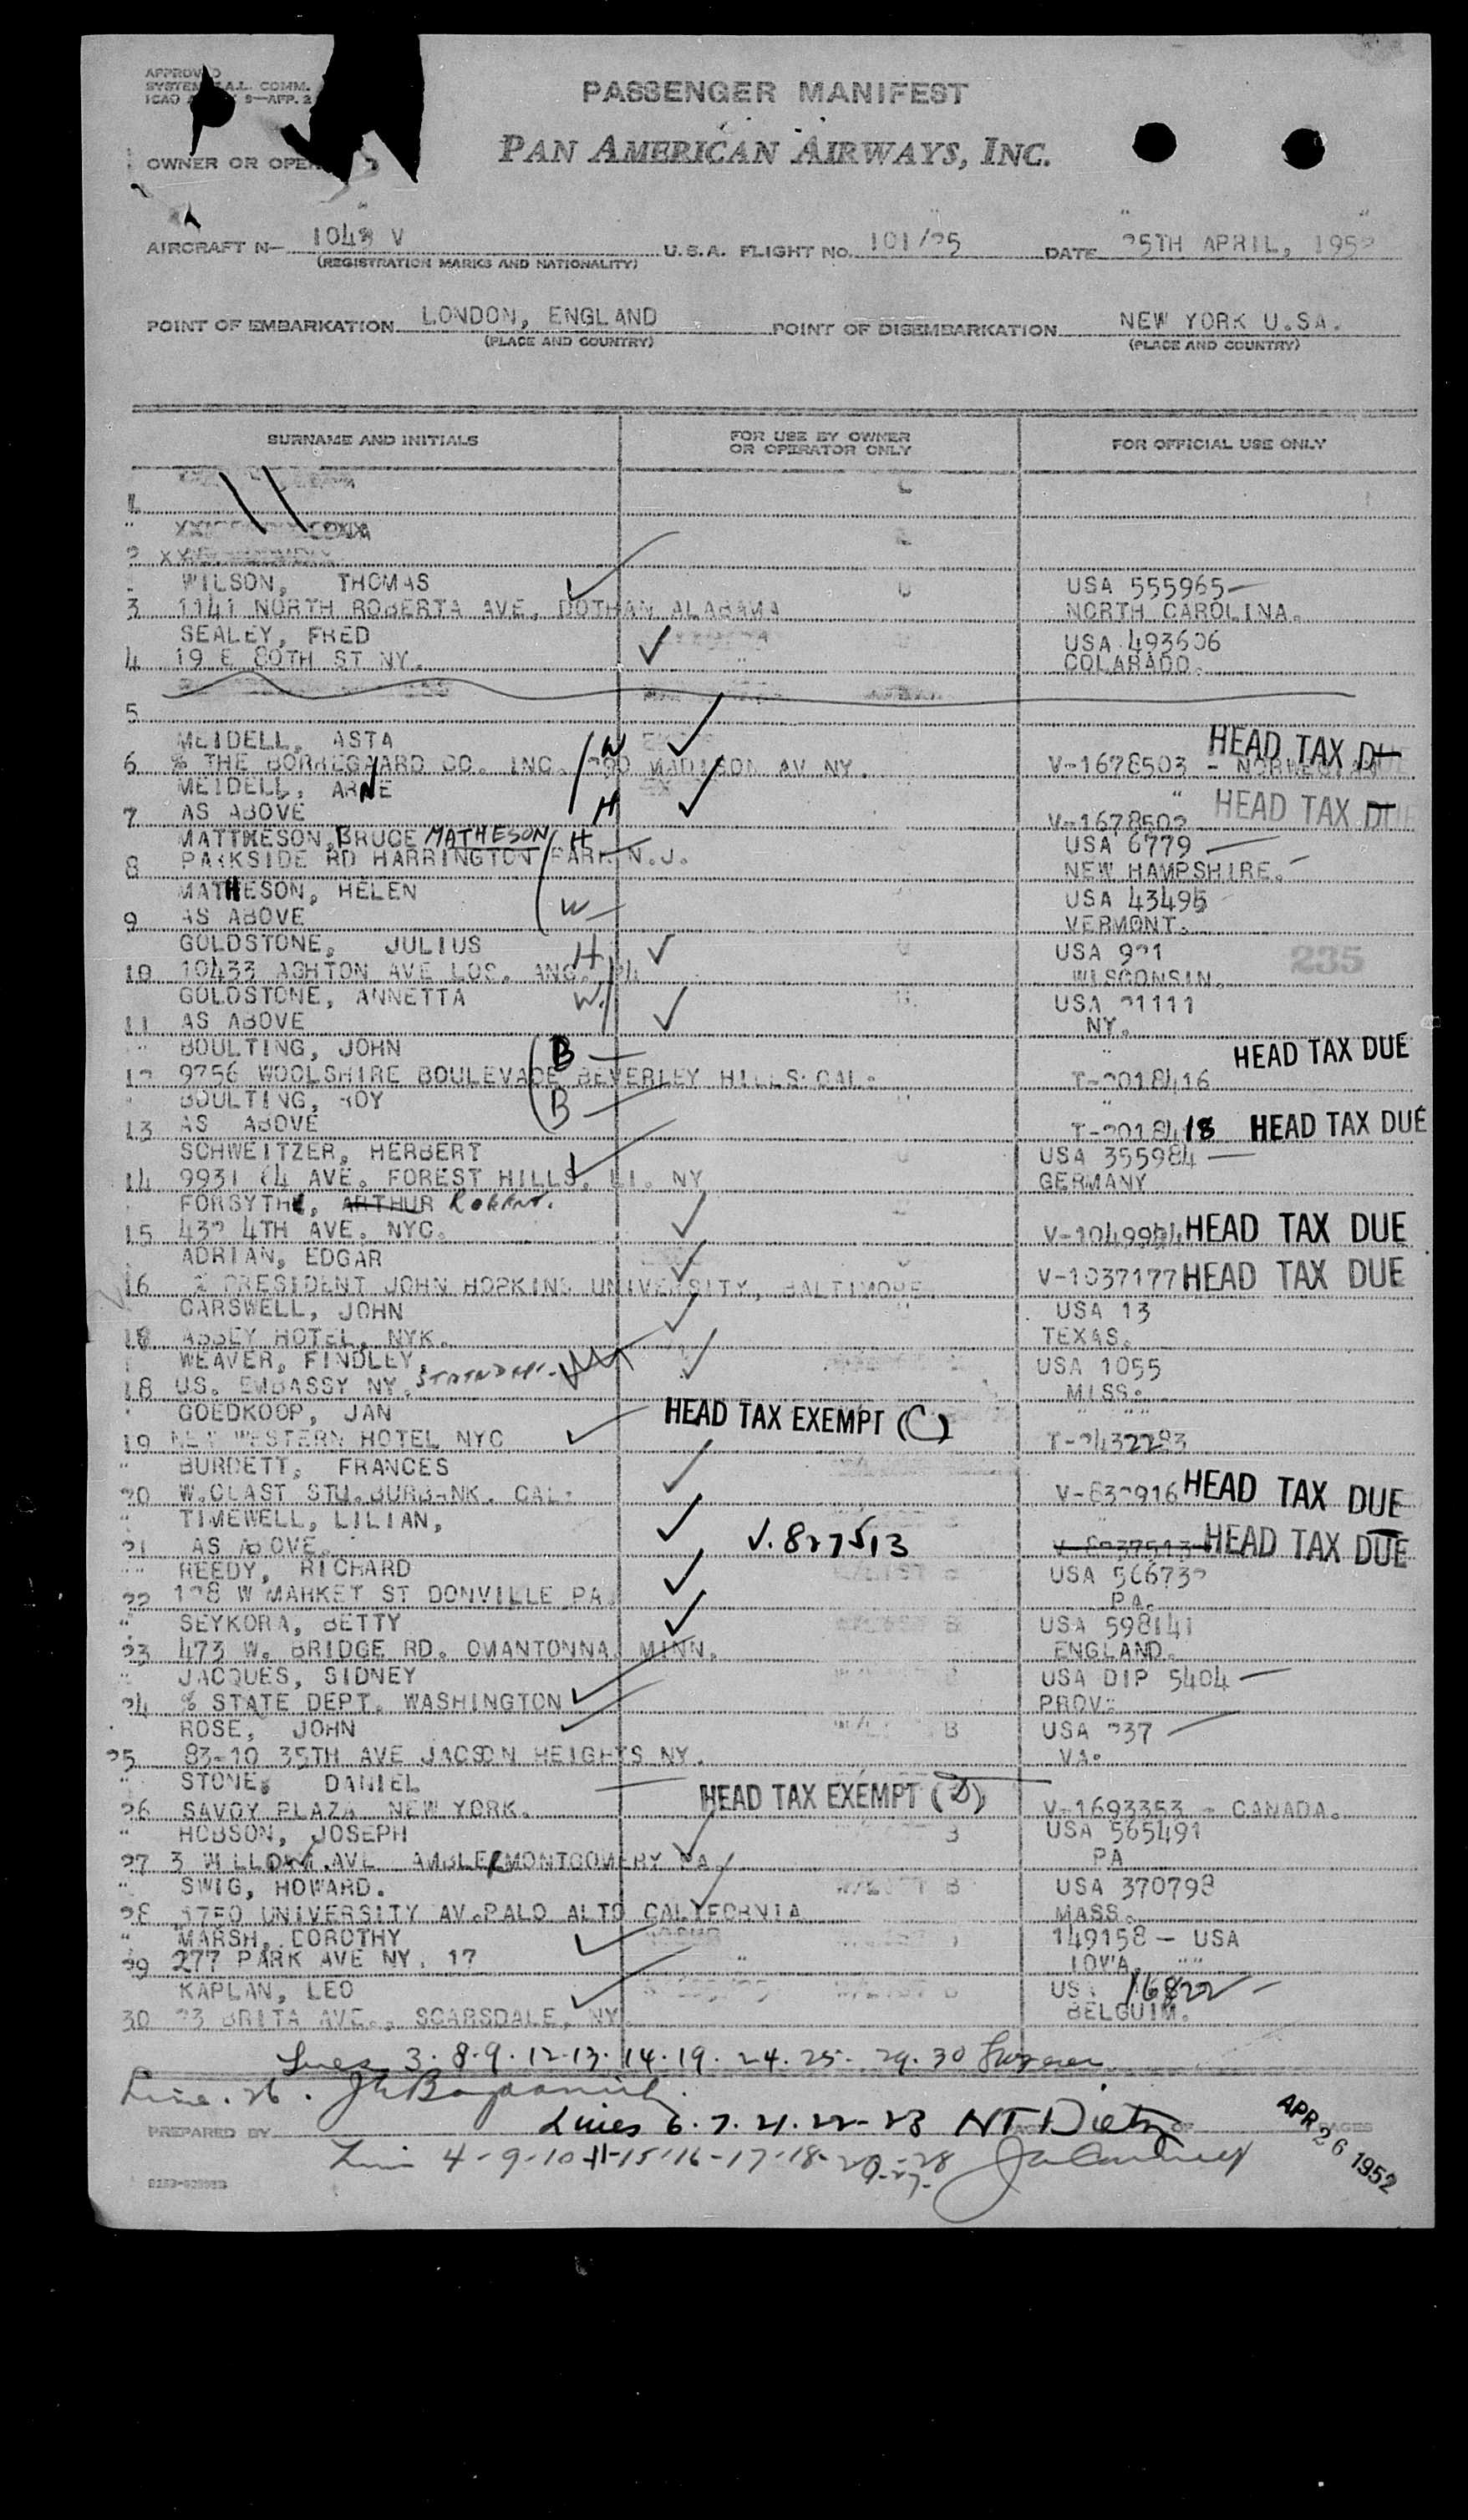 APPROVED
OWNER OR
PASSENGER MANIFEST
PAN AMERICAN AIRWAYS, INC.
AIRCRAFT N— 1048 V U.S.A. FLIGHT NO. 101/25 DATE 25TH APRIL, 1952
(REGISTRATION MARKS AND NATIONALITY)
POINT OF EMBARKATION LONDON, ENGLAND POINT OF DISEMBARKATION NEW YORK U.SA.
(PLACE AND COUNTRY) (PLACE AND COUNTRY)
SURNAME AND INITIALS FOR USE BY OWNER OR OPERATOR ONLY FOR OFFICIAL USE ONLY
1
2
WILSON, THOMAS USA 555965
3 1141 NORTH ROBERTA AVE, DOTHAN ALABAMA NORTH CAROLINA.
SEALEY, FRED USA 493606
4 19 E 80TH ST NY. COLARADO.
5
MEIDELL, ASTA W HEAD TAX DUE
6 % THE BORREGAARD CO. INC. 290 MADISON AV NY. V-1678503 - NORWEGIAN
MEIDELL, ARNE " HEAD TAX DUE
7 AS ABOVE H V-1678502
MATTHESON, BRUCE MATHESON H USA 6779
8 PARKSIDE RD HARRINGTON PARK N.J. NEW HAMPSHIRE.
MATHESON, HELEN USA 43495
9 AS ABOVE W VERMONT.
GOLDSTONE, JULIUS H USA 921
10 10433 ASHTON AVE LOS. ANG. 24 WISCONSIN. 235
GOLDSTONE, ANNETTA W. USA 21111
11 AS ABOVE NY.
BOULTING, JOHN B HEAD TAX DUE
12 9756 WOOLSHIRE BOULEVADE BEVERLEY HILLS CAL. T-2018416
BOULTING, ROY B
13 AS ABOVE T-2018418 HEAD TAX DUE
SCHWEITZER, HERBERT USA 355984
14 9931 64 AVE. FOREST HILLS. LI. NY GERMANY
FORSYTHE, ARTHUR ROBERT.
15 432 4TH AVE. NYC. V-1049954 HEAD TAX DUE
ADRIAN, EDGAR
16 % PRESIDENT JOHN HOPKINS UNIVERSITY, BALTIMORE. V-1037177 HEAD TAX DUE
CARSWELL, JOHN USA 13
18 ABBEY HOTEL, NYK. TEXAS.
WEAVER, FINDLEY, USA 1055
18 US. EMBASSY NY. MISS.
GOEDKOOP, JAN HEAD TAX EXEMPT (C)
19 NEW WESTERN HOTEL NYC T-2432283
BURDETT, FRANCES
20 W.COAST STU.BURBANK. CAL. V-832916 HEAD TAX DUE
TIMEWELL, LILIAN,
21 AS ABOVE. V.827513 V-8237513 HEAD TAX DUE
REEDY, RICHARD USA 566732
22 128 W MARKET ST DONVILLE PA. PA.
SEYKORA, BETTY USA 598141
23 473 W. BRIDGE RD. OMANTONNA, MINN. ENGLAND.
JACQUES, SIDNEY USA DIP 5404
24 % STATE DEPT. WASHINGTON PROV.
ROSE, JOHN B USA 237
25 83-10 35TH AVE JACSON HEIGHTS NY. VA.
STONE, DANIEL HEAD TAX EXEMPT (D)
26 SAVOY PLAZA NEW YORK. V-1693353 - CANADA.
HOBSON, JOSEPH B USA 565491
27 3 WILLOW AVE AMBLER MONTGOMERY PA. PA
SWIG, HOWARD. B USA 370798
28 1750 UNIVERSITY AV.PALO ALTO CALIFORNIA MASS.
MARSH, DOROTHY 149158 - USA
29 277 PARK AVE NY. 17 IOWA.
KAPLAN, LEO USA 16822
30 23 BRITA AVE., SCARSDALE, NY. BELGUIM.
Lines 3.8.9.12.13.14.19.24.25.29.30
Line.26.
PREPARED BY Lines 6.7.21.22-23 NT Dietz OF PAGES
4-9-10-11-15-16-17-18-20-28
27-
APR 26 1952